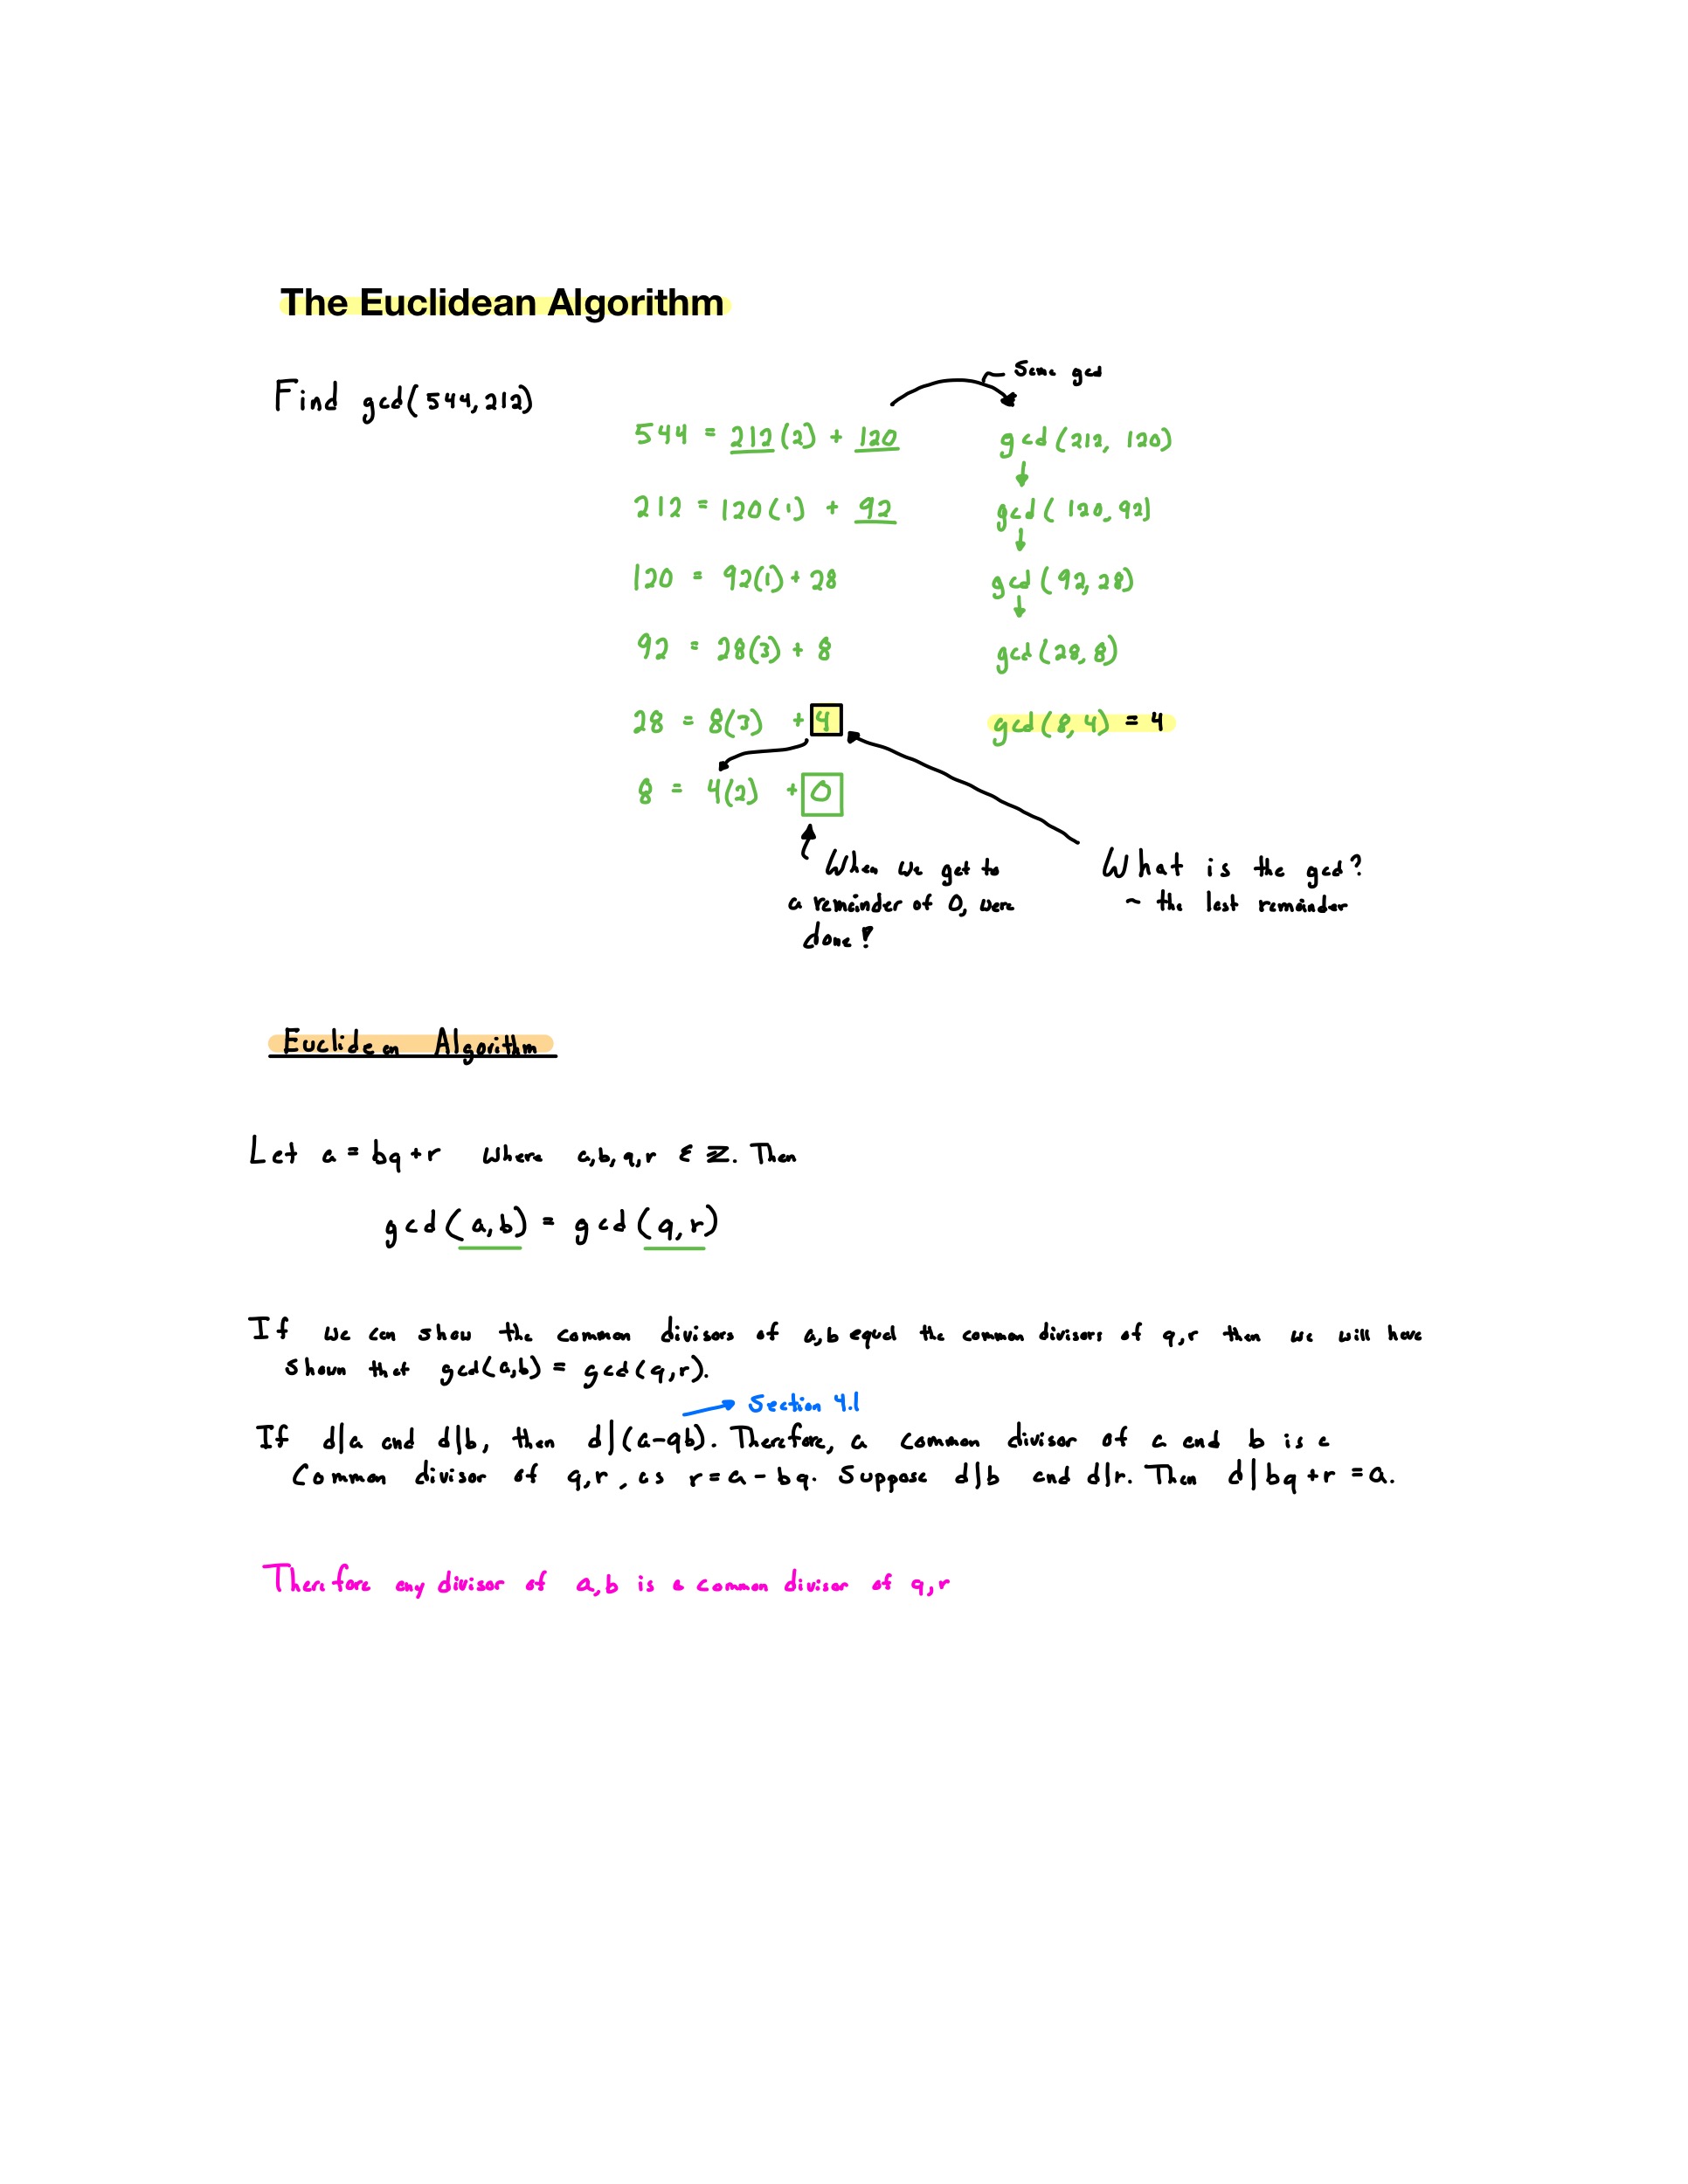 The Euclidean Algorithm
Find gcd(544,212)
Same gcd
544 = 212(2) + 120
gcd(212, 120)
212 = 120(1) + 92
gcd(120,92)
120 = 92(1) + 28
gcd(92,28)
92 = 28(3) + 8
gcd(28,8)
28 = 8(3) + 4
gcd(8,4) = 4
8 = 4(2) + 0
When we get to
a remainder of 0, were
done!
What is the gcd?
~ the last remainder
Euclidean Algorithm
Let a = bq + r where a,b,q,r ∈ Z. Then
gcd(a,b) = gcd(q,r)
If we can show the common divisors of a,b equal the common divisors of q,r then we will have
shown that gcd(a,b) = gcd(q,r).
Section 4.1
If d|a and d|b, then d|(a-qb). Therefore, a common divisor of a and b is a
Common divisor of q,r, as r = a - bq. Suppose d|b and d|r. Then d|bq + r = a.
Therefore any divisor of a,b is a common divisor of q,r